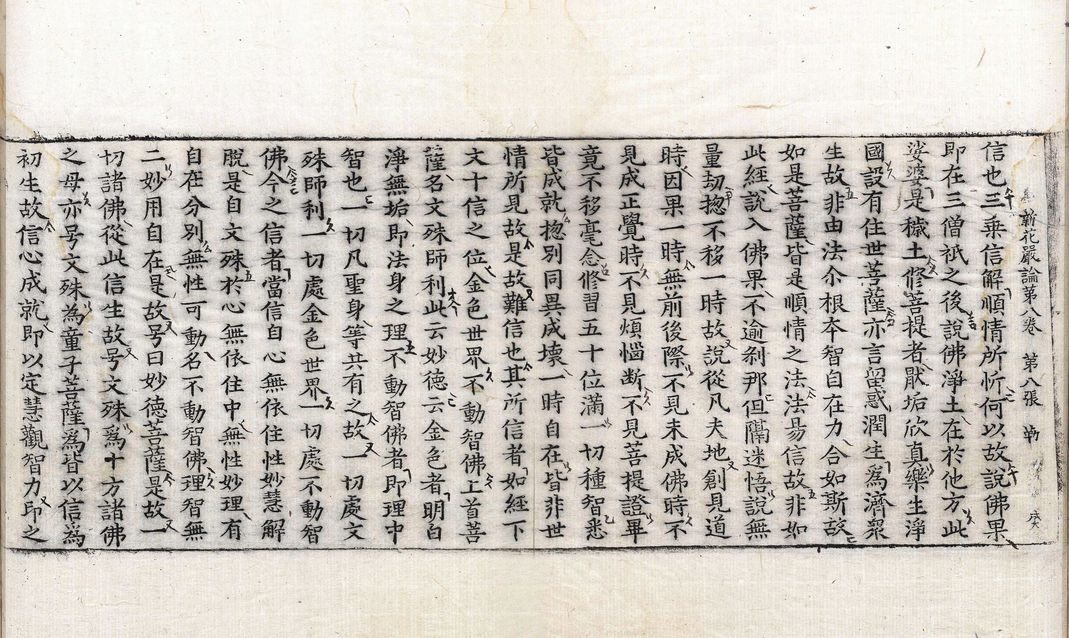 信也三乘信解順情所忻何以故說佛果
新花嚴論第八卷 第八張
即在三僧祇之後說佛淨土在於他方此
娑婆是穢土修菩提者猒垢欣真樂生淨
國設有住世菩薩亦言留惑潤生為濟衆
生故非由法尒根本智自在力合如斯故
如是菩薩皆是順情之法法易信故非如
此經說入佛果不逾剎那但隔迷悟說無
量劫揔不移一時故說從凡夫地創見道
時因果一時無前後際不見未成佛時不
見成正覺時不見煩惱断不見菩提證畢
竟不移毫念修習五十位滿一切種智悉
皆成就揔別同異成壞一時自在皆非世
情所見故是故難信也其所信者如經下
文十信之位金色世界不動智佛上首菩
薩名文殊師利此云妙德云金色者明白
淨無垢即法身之理不動智佛者即理中
智也一切凡聖身等共有之故一切處文
殊師利一切處金色世界一切處不動智
佛今之信者當信自心無依住性妙慧解
脫是自文殊於心無依住中無性妙理有
自在分別無性可動名不動智佛理智無
二妙用自在是故号曰妙德菩薩是故一
切諸佛從此信生故号文殊為十方諸佛
之母亦号文殊為童子菩薩為皆以信為
初生故信心成就即以定慧觀智力印之